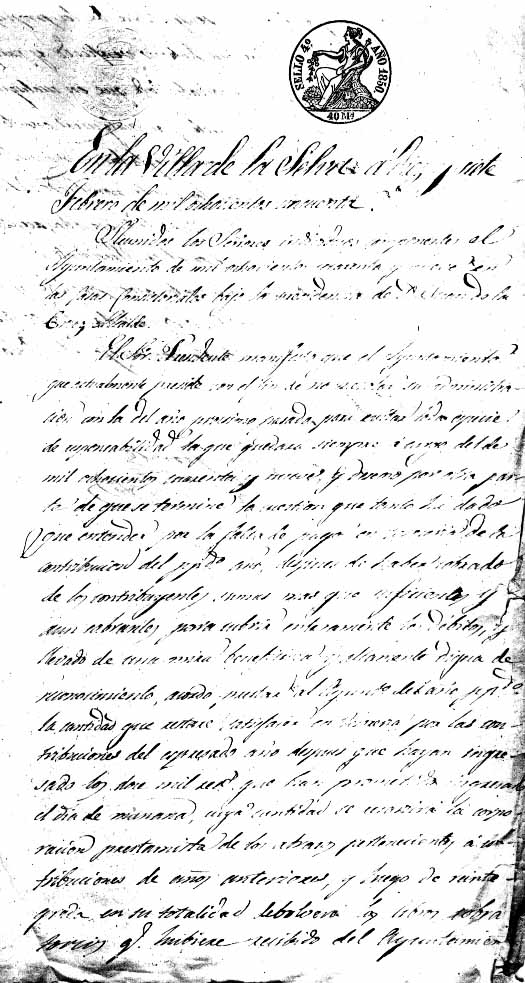 SELLO 4º AÑO 1850.
40 Ms.
En la Villa de la Selva á diez y siete
Febrero de mil ochocientos cincuenta.
Reunidos los Señores individuos componentes el
Ayuntamiento de mil ochocientos cuarenta y nueve en
las casas Consistoriales bajo la presidencia de Dn la
Cruz, Alcalde.
El Sor. Presidente manifestó que el Ayuntamiento
que actualmente preside con el fin de no mezclar su administra
cion con la del año procsimo pasado para evitar toda especie
de responsabilidad la que quedará siempre á cargo del de
mil ochocientos cuarenta y nueve, y deseoso por otra par
te de que se termine la cuestion que tanto ha dado
que entender por la falta de pago en Tesoreria de la
contribucion del ppdo. año, despues de haber cobrado
de los contribuyentes sumas mas que suficientes y
aun sobrantes para cubrir enteramente los débitos, y
llevado de una mira benéfica y altamente digna de
reconocimiento, acordó prestar al Ayunto. del año ppdo.
la cantidad que restare satisfacer en Tesoreria por las con
tribuciones del espresado año despues que hayan ingre
sado los doce mil rs. que han prometido ingresar
el dia de mañana, cuya cantidad se la corpo
racion prestamista de los atrasos pertenecientes á con
tribuciones de años anteriores, y luego de reinte
grada en su totalidad debolverá los libros cobra
torios q. hubiese recibido del Ayuntamien